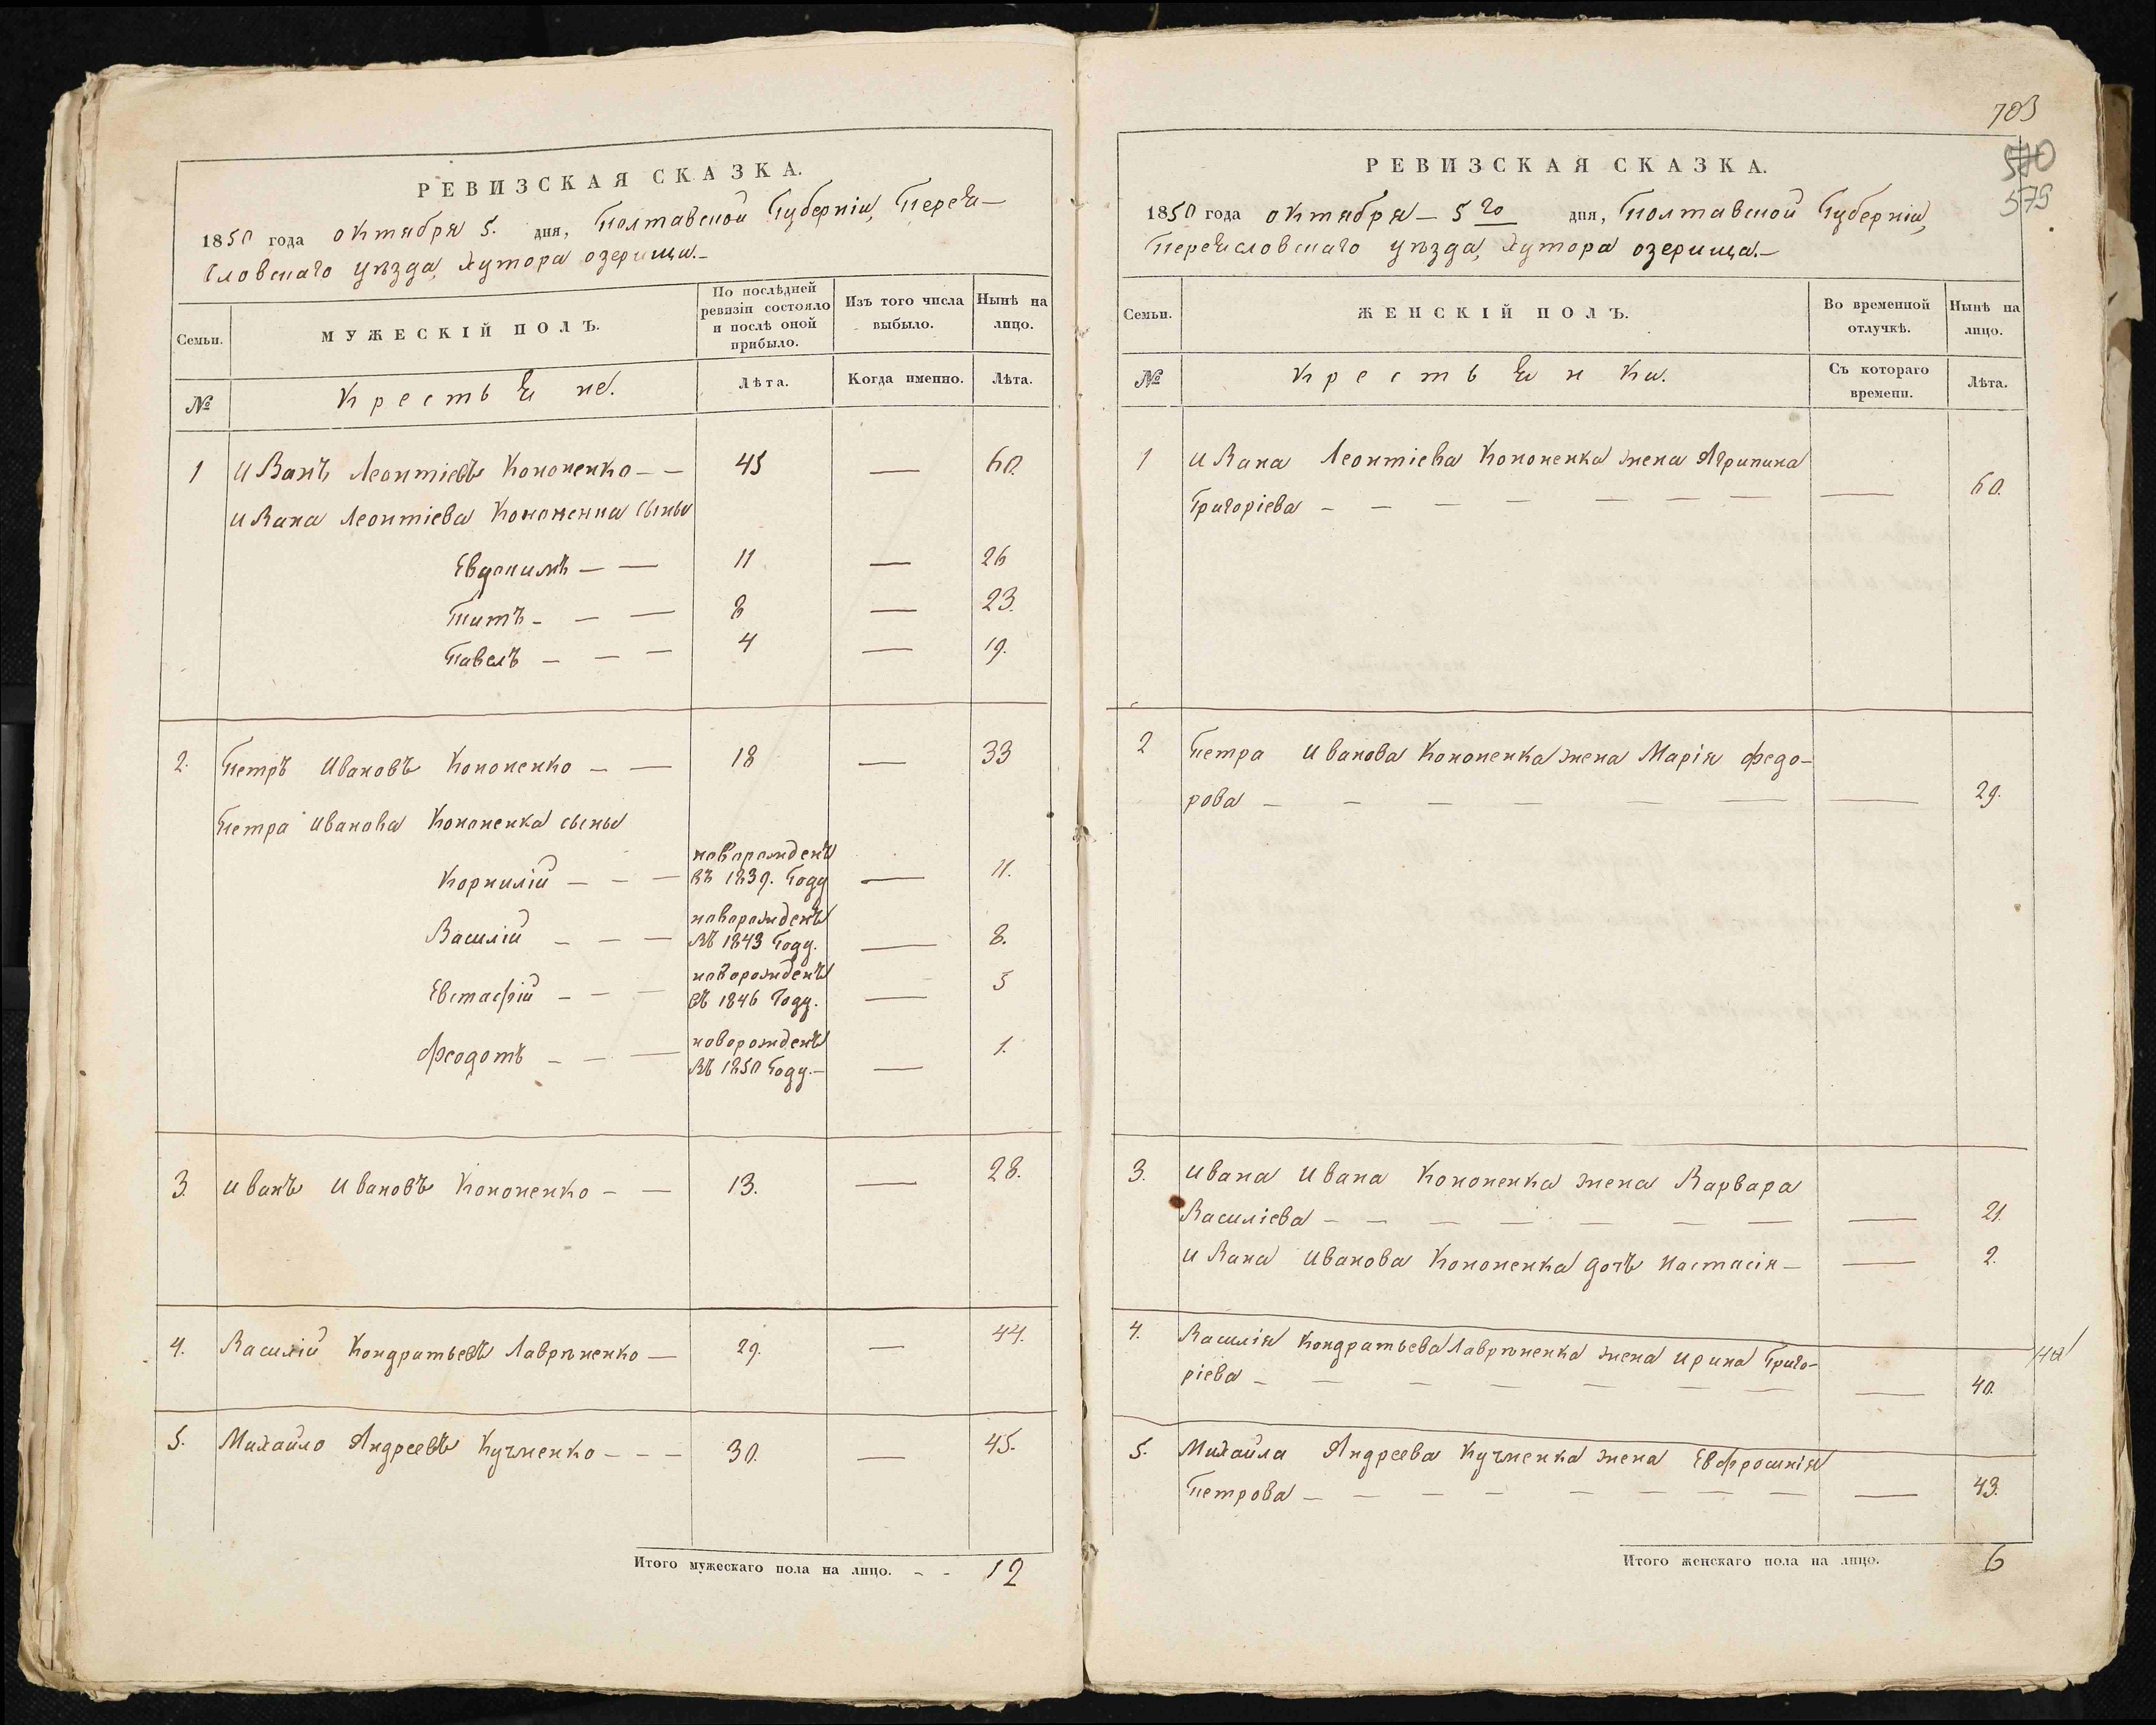 РЕВИЗСКАЯ СКАЗКА.
1850 года октября 5. дня, Полтавской Губерніи, Перея-
словскаго уѣзда, хутора озерища.-
Семьи.
МУЖЕСКІЙ ПОЛЪ.
По послѣдней ревизіи состояло и послѣ оной прибыло.
Изъ того числа выбыло.
Нынѣ на лицо.
№
Крестьяне.
Лѣта.
Когда именно.
Лѣта.
1 Иванъ Леонтіевъ Кононенко — — 45 — 60.
Ивана Леонтіева Кононенка сыны
Евдокимъ — — 11 — 26
Титъ — — — 8 — 23.
Павелъ — — — 4 — 19.
2. Петръ Ивановъ Кононенко — — 18 — 33
Петра Иванова Кононенка сыны
новорожденъ
Корнилій — — — въ 1839. Году — 11.
новорожденъ
Василій — — — въ 1843 Году. — 8.
новорожденъ
Евстафій — — — въ 1846 Году. — 5
новорожденъ
Феодотъ — — — въ 1850 Году. — — 1.
3. Иванъ Ивановъ Кононенко — — 13. — 28.
4. Василій Кондратьевъ Лаврѣненко — 29. — 44.
5. Михайло Андреевъ Кучменко — — — 30. — 45.
Итого мужескаго пола на лицо. - - 12
703
580
579
РЕВИЗСКАЯ СКАЗКА.
1850 года октября — 5го дня, Полтавской Губерніи,
Переясловскаго уѣзда, хутора озерища.—
Семьи.
ЖЕНСКІЙ ПОЛЪ.
Во временной отлучкѣ.
Нынѣ на лицо.
№
Крестьянки.
Съ котораго времени.
Лѣта.
1 Ивана Леонтіева Кононенка жена Агрипина
Григоріева — — — — — — — — 60.
2 Петра Иванова Кононенка жена Марія Федо-
рова — — — — — — 29.
3. Ивана Ивана Кононенка жена Варвара
Василіева — — — — — — — — 21.
Ивана Иванова Кононенка дочь Настасія — — 2.
4. Василія Кондратьева Лаврѣненка жена Ирина Григо-
ріева — — — — — — — — 40.
5. Михайла Андреева Кучменка жена Евфросинія
Петрова — — — — — — — — — 43.
Итого женскаго пола на лицо. 6